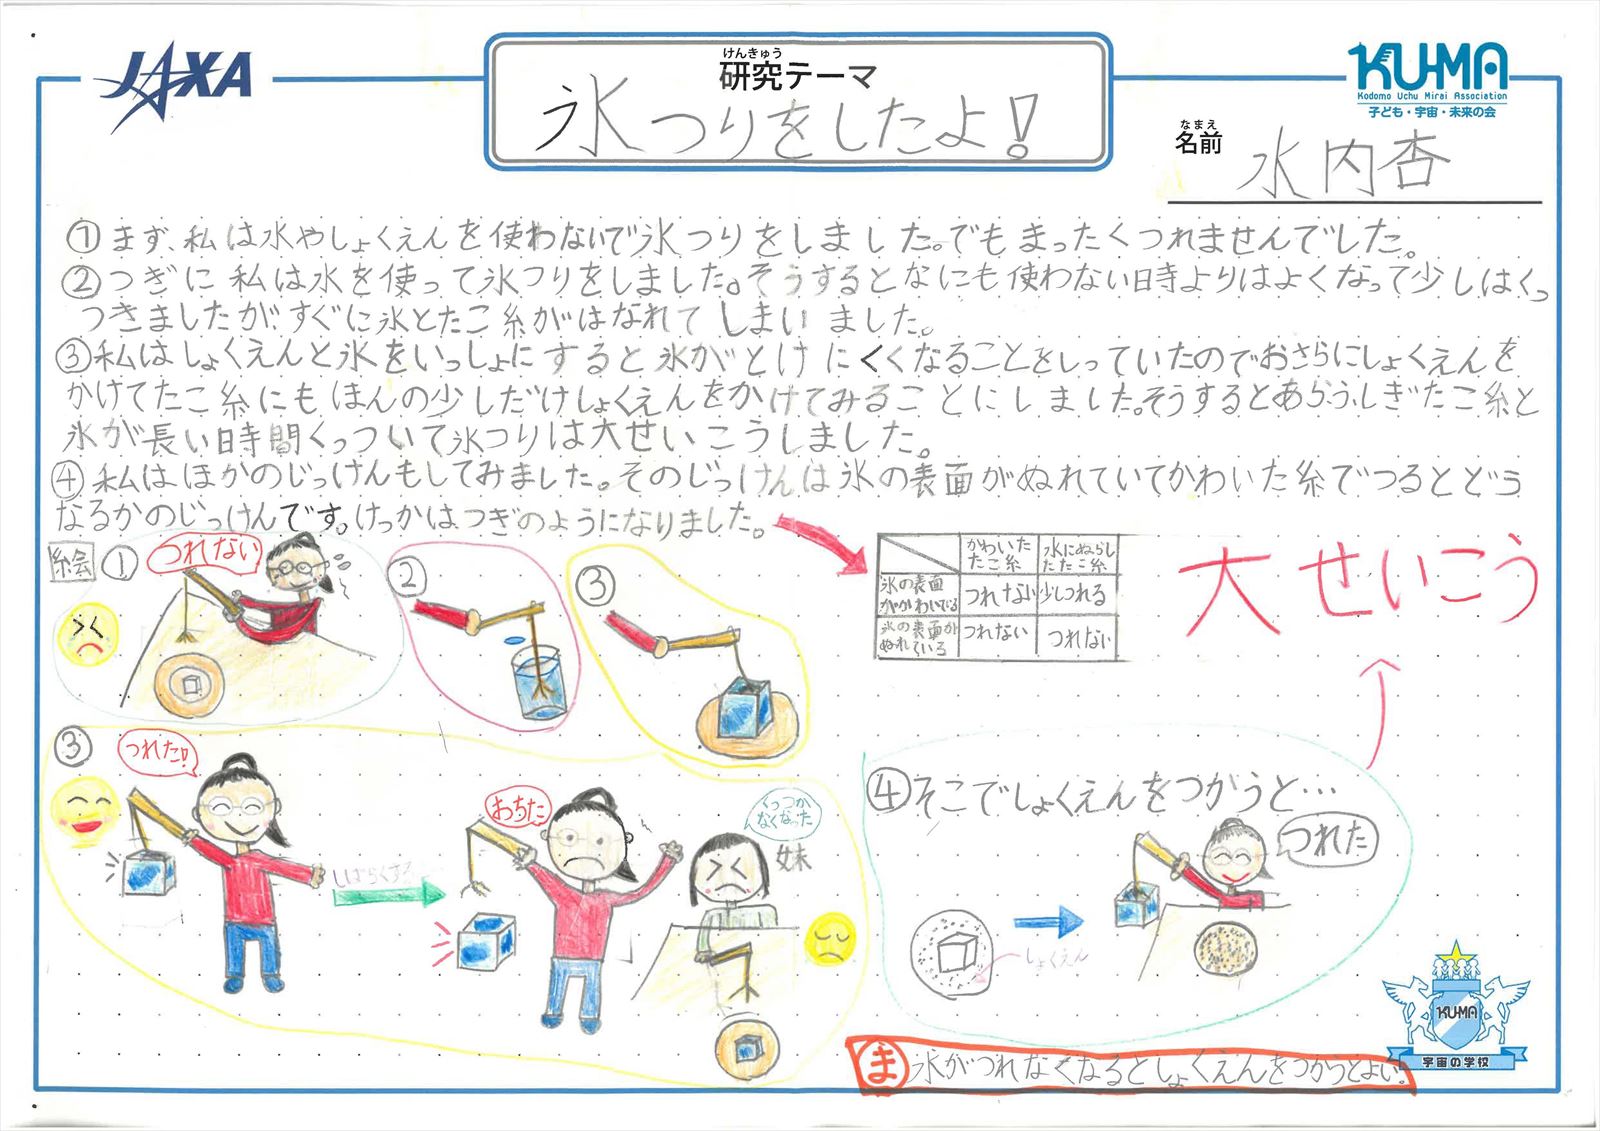 JAXA
けんきゅう
研究テーマ
氷つりをしたよ!
KUMA
Kodomo Uchu Mirai Association
子ども・宇宙・未来の会
なまえ
名前
水内杏
①まず、私は水やしょくえんを使わないで氷つりをしました。でもまったくつれませんでした。
②つぎに私は水を使って氷つりをしました。そうするとなにも使わない時よりはよくなって少しはくっ
つきましたが、すぐに氷とたこ糸がはなれてしまいました。
③私はしょくえんと氷をいっしょにすると氷がとけにくくなることをしっていたのでおさらにしょくえんを
かけてたこ糸にもほんの少しだけしょくえんをかけてみることにしました。そうするとあらふしぎたこ糸と
氷が長い時間くっついて氷つりは大せいこうしました。
④私はほかのじっけんもしてみました。そのじっけんは氷の表面がぬれていてかわいた糸でつるとどう
なるかのじっけんです。けっかはつぎのようになりました。
絵
①
つれない
②
③
かわいた
たこ糸
水にぬらし
たたこ糸
氷の表面
がかわいてる
つれない
少しつれる
氷の表面が
ぬれている
つれない
つれない
大せいこう
③
つれた!
しばらくする
おちた
くっつか
なくなった
妹
④そこでしょくえんをつかうと…
つれた
しょくえん
KUMA
宇宙の学校
ま 氷がつれなくなるとしょくえんをつかうとよい。